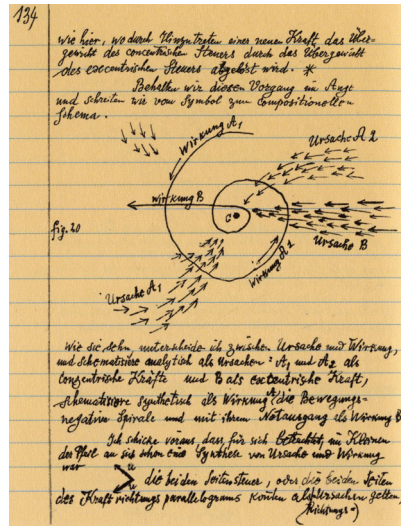 134
wie hier, wo durch Hinzutreten einer neuen Kraft das Über-
gewicht des concentrischen Steuers durch das Übergewicht
des excentrischen Steuers abgelöst wird. *
Behalten wir diesen Vorgang im Auge
und schreiten wir vom Symbol zum Compositionellen
Schema.
Wirkung A1
Ursache A2
Wirkung B
C
fig. 20
Ursache B
Wirkung A2
Ursache A1
Wie sie sehn, unterscheide ich zwischen Ursache und Wirkung,
und schematisiere analytisch als Ursachen: A1 und A2 als
conzentrische Kräfte und B als excentrische Kraft,
schematisiere synthetisch als Wirkung A die Bewegungs-
negative Spirale und mit ihrem Notausgang als Wirkung B
Ich schicke voraus, dass für sich betrachtet, im Kleinen
der Pfeil an sich schon eine Synthese von Ursache und Wirkung
war u
u die beiden Seitensteuer, oder die beiden Seiten
des Kraftrichtungsparallelograms konnten als Ursachen gelten,
(Richtungs=)